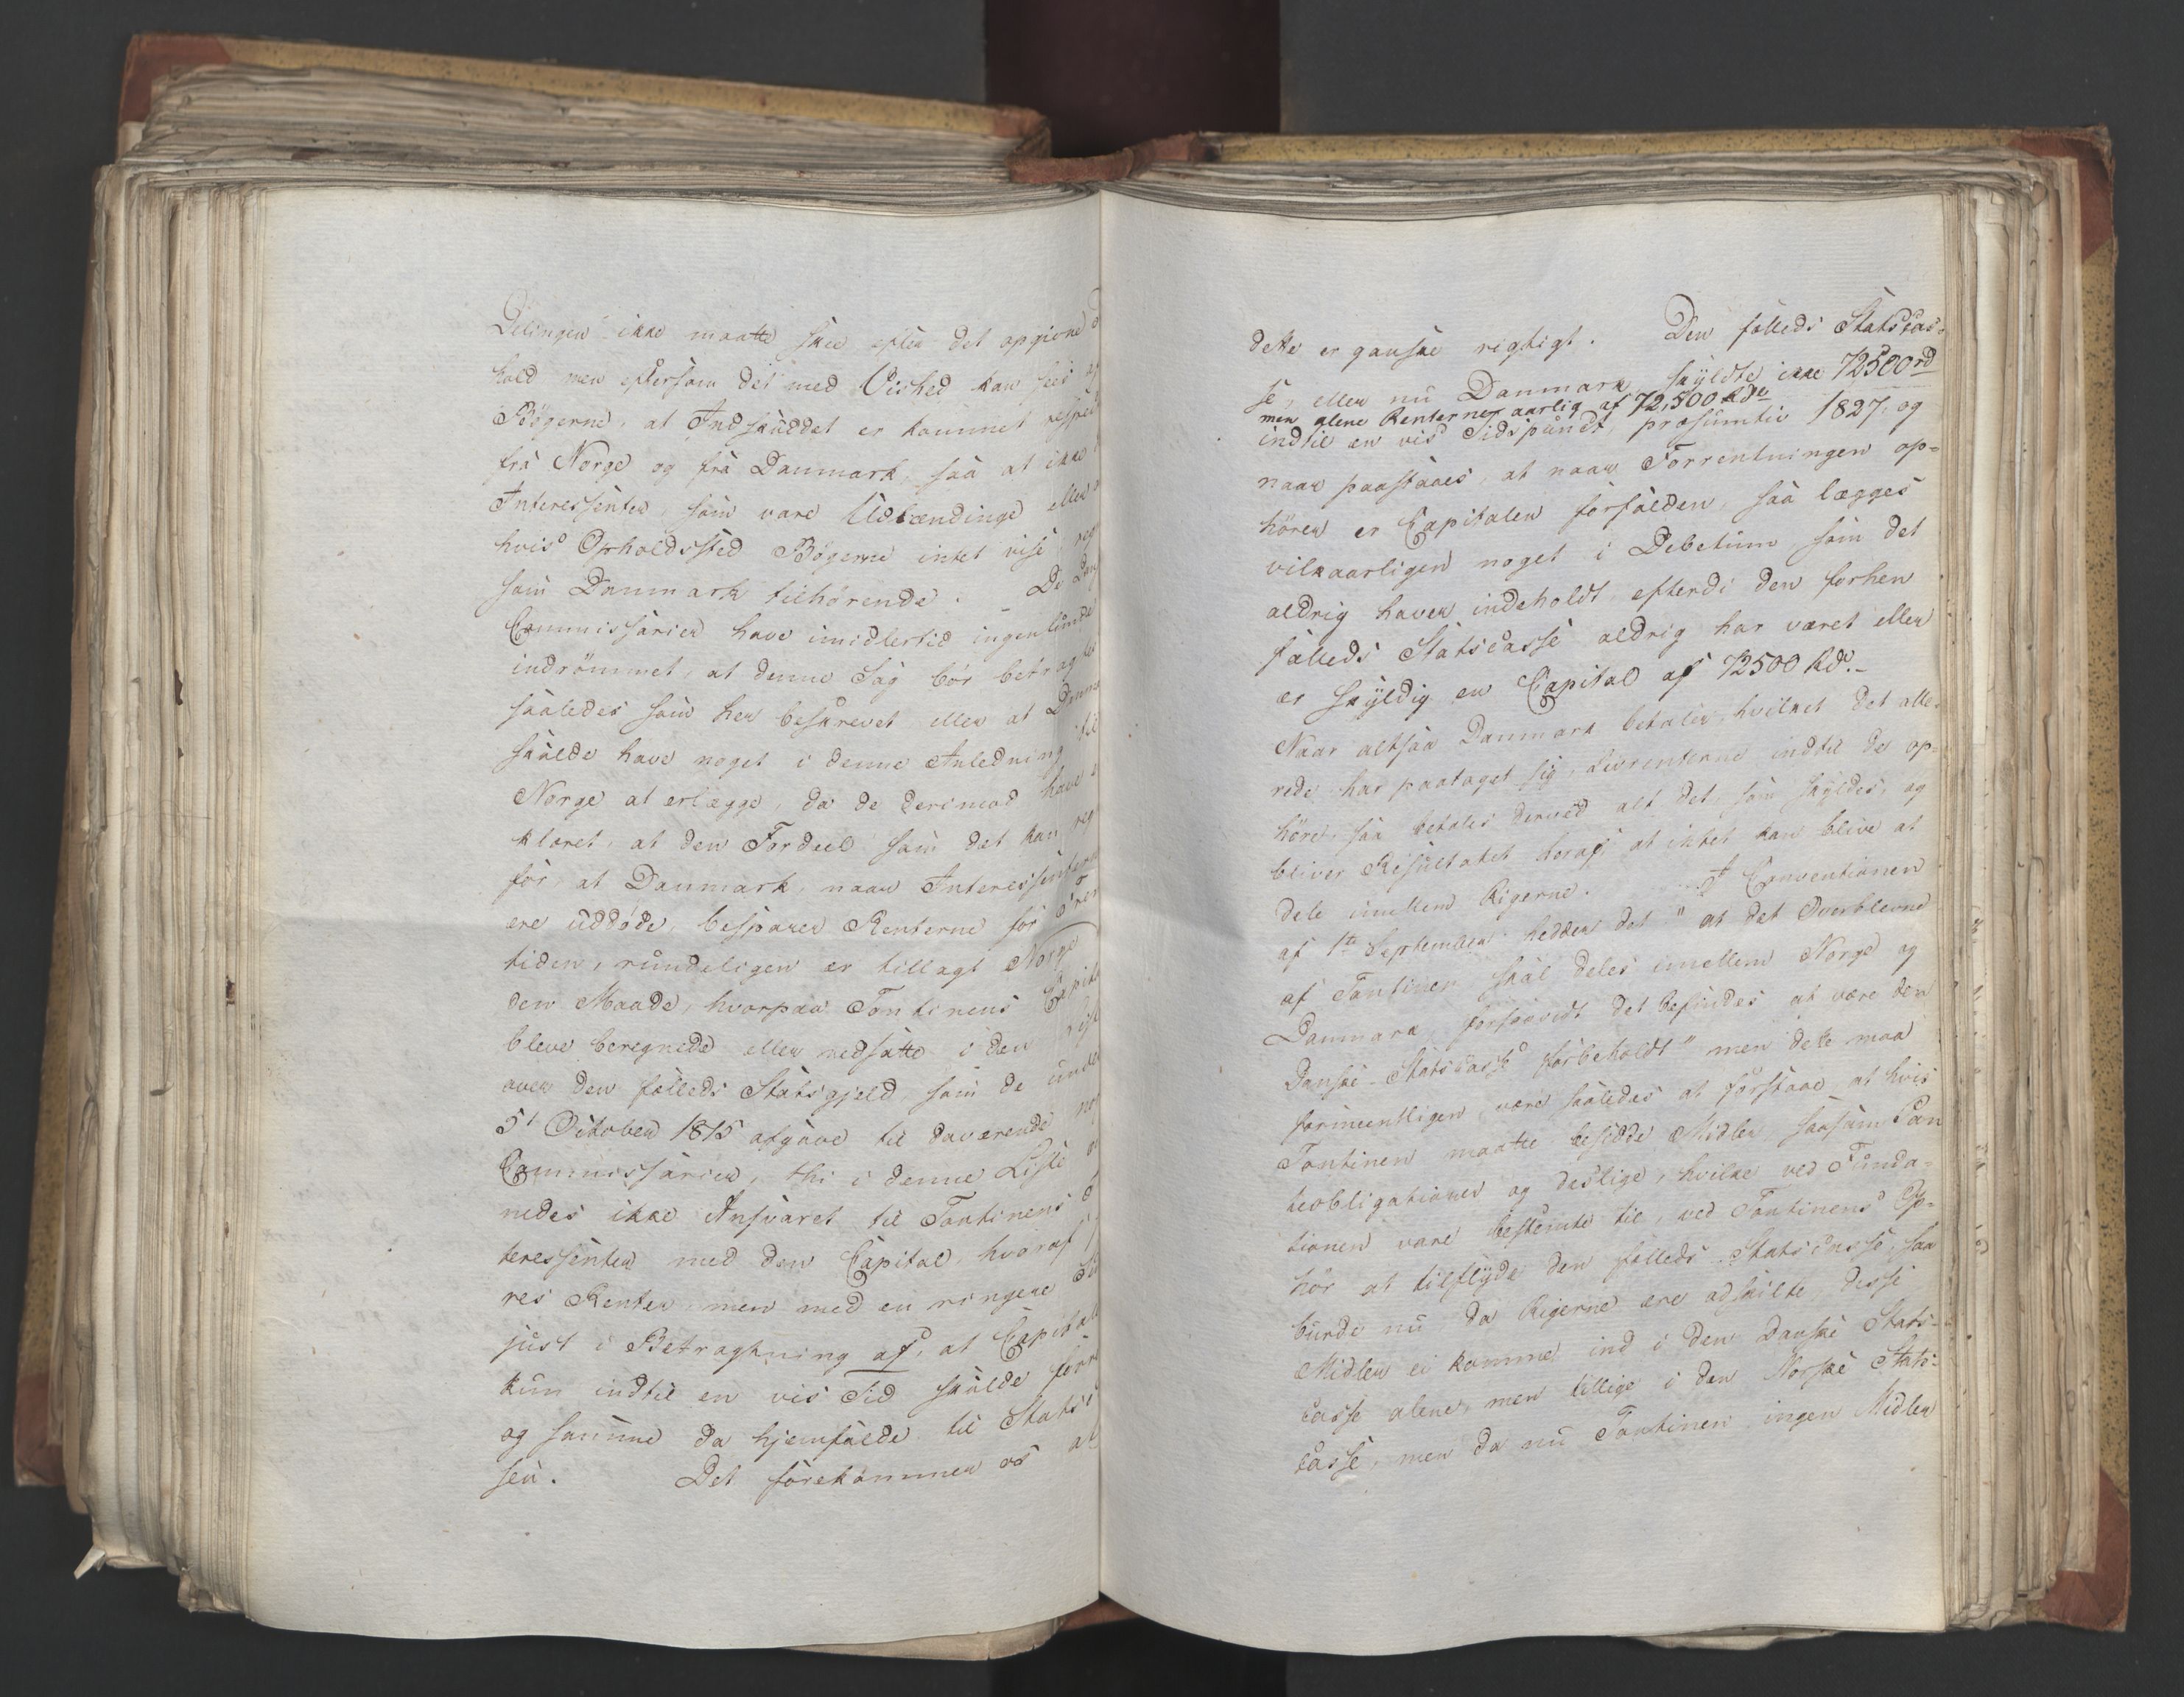 Delingen ikke maatte skee efter det opgivne
hold men eftersom det med Vished kan sees af
Bögerne, at Indskuddet er kommet
fra Norge og fra Danmark, saa at ikke
Interessenter, som vare Udlændinge eller
hvis Opholdssted Bögerne intet vise
som Danmark tilhörende. – De
Commissarier have imidlertid ingenlunde
indrömmet, at denne Sag bör betragtes
saaledes som her beskrevet eller at
skulde have noget i denne Anledning til
Norge at erlægge, da de derimod have
klaret, at den Fordeel som det kan
for, at Danmark, naar Interessenterne
ere uddöde, besparer Renterne for
tiden, rundeligen er tillagt Norge
den Maade, hvorpaa Tontinens
bleve beregnede eller nedsatte i den
over den fælleds Statsgjeld som de under
5t October 1815 afgave til daværende
Commissarier, thi i denne Liste
nedes ikke Ansvaret til Tontinens
teressenter med den Capital, hvoraf
res Renter, men med en ringere
just i Betragtning af, at Capitalen
kun indtil en vis Tid skulde
og samme da hjemfalde til Stats
sen. Det forekommer os at
dette er ganske rigtigt. Den fælleds Statscas-
se, eller nu Danmark, skyldte ikke 72500 rd
men alene Renterne aarlig af 72,500 Rdr
indtil en vis Tidspunct, præsumtiv 1827, og
naar paastaaes, at naar Forrentningen op-
hörer er Capitalen forfalden, saa lægges
vilkaarligen noget i Debetum som det
aldrig haver indeholdt, efterdi den forhen
fælleds Statscasse aldrig har været eller
er skyldig en Capital af 72500 Rd. –
Naar altsaa Danmark betaler, hvilket det alle-
rede har paataget sig, Livrenterne indtil de op-
höre, saa betales derved alt det, som skyldes, og
bliver Resultatet deraf, at intet kan blive at
dele imellem Rigerne. I Conventionen
af 1te September hedder det "at det Overblevne
af Tontinen skal deles imellem Norge og
Danmark, forsaavidt det befindes at være den
Danske Statscasse forbeholdt" men dette maa
formeentligen være saaledes at forstaae, at hvis
Tontinen maatte besidde Midler saasom Pan
teobligationer og deslige, hvilke ved Funda-
tionen vare bestemte til, ved Tontinens Op-
hör at tilflyde den fælleds Statscasse, saa
burde nu da Rigerne ere adskilte, disse
Midler ei komme ind i den Danske Stats-
casse alene, men tillige i den Norske Stats-
casse, men da nu Tontinen ingen Midler